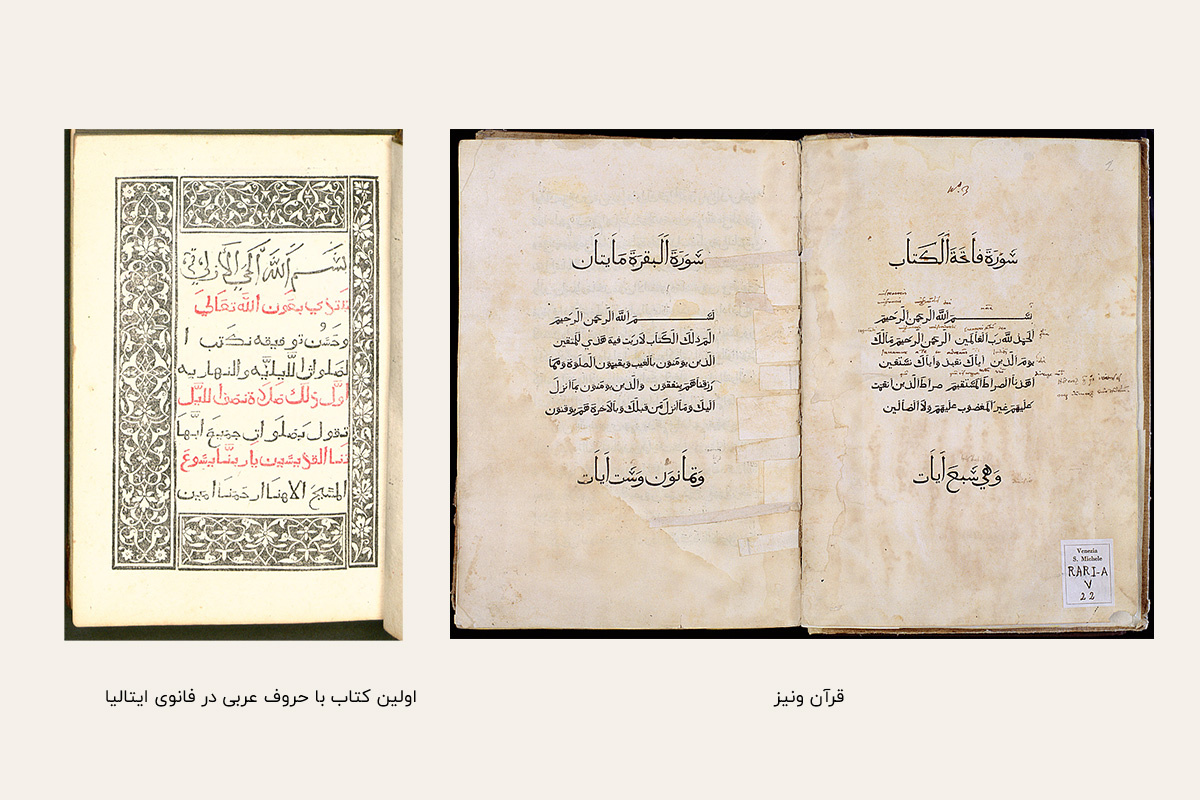 سورة فاتحة الكتاب
بسم الله الرحمن الرحيم
الحمد لله رب العالمين الرحمن الرحيم مالك
يوم الدين اياك نعبد واياك نستعين
اهدنا الصراط المستقيم صراط الذين انعمت
عليهم غير المغضوب عليهم ولا الضالين
وهي سبع ايات
Venezia
S. Michele
RARI-A
V
22
سورة البقرة مايتان
بسم الله الرحمن الرحيم
الم ذلك الكتاب لا ريب فيه هدي للمتقين
الذين يومنون بالغيب ويقيمون الصلوة ومما
رزقناهم ينفقون والذين يومنون بما انزل
اليك وما انزل من قبلك وبالاخرة هم يوقنون
وثمانون وست ايات
قرآن ونیز
بسم الله الحي الازلي
نبتدي بعون الله تعالي
وحسن توفيقه نكتب ا
لصلوات الليليه والنهاريه
اول ذلك صلاة نصف الليل
تقول بصلوات جميع ابها
تنا القديسين يا ربنا يسوع
المسيح الاهنا ارحمنا امين
اولین کتاب با حروف عربی در فانوی ایتالیا